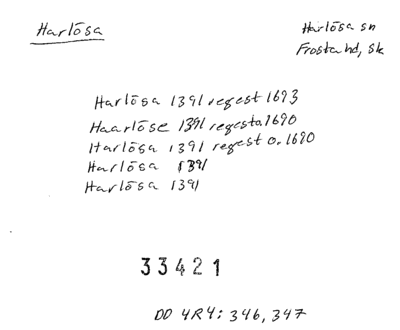 Harlōsa
Harlōsa sn
Frosta hd, Sk
Harlōsa 1391 regest 1693
Haarlōse 1391 regest o. 1690
Harlōsa 1391 regest o. 1690
Harlōsa 1391
Harlōsa 1391
33421
DD 4R4: 346, 347